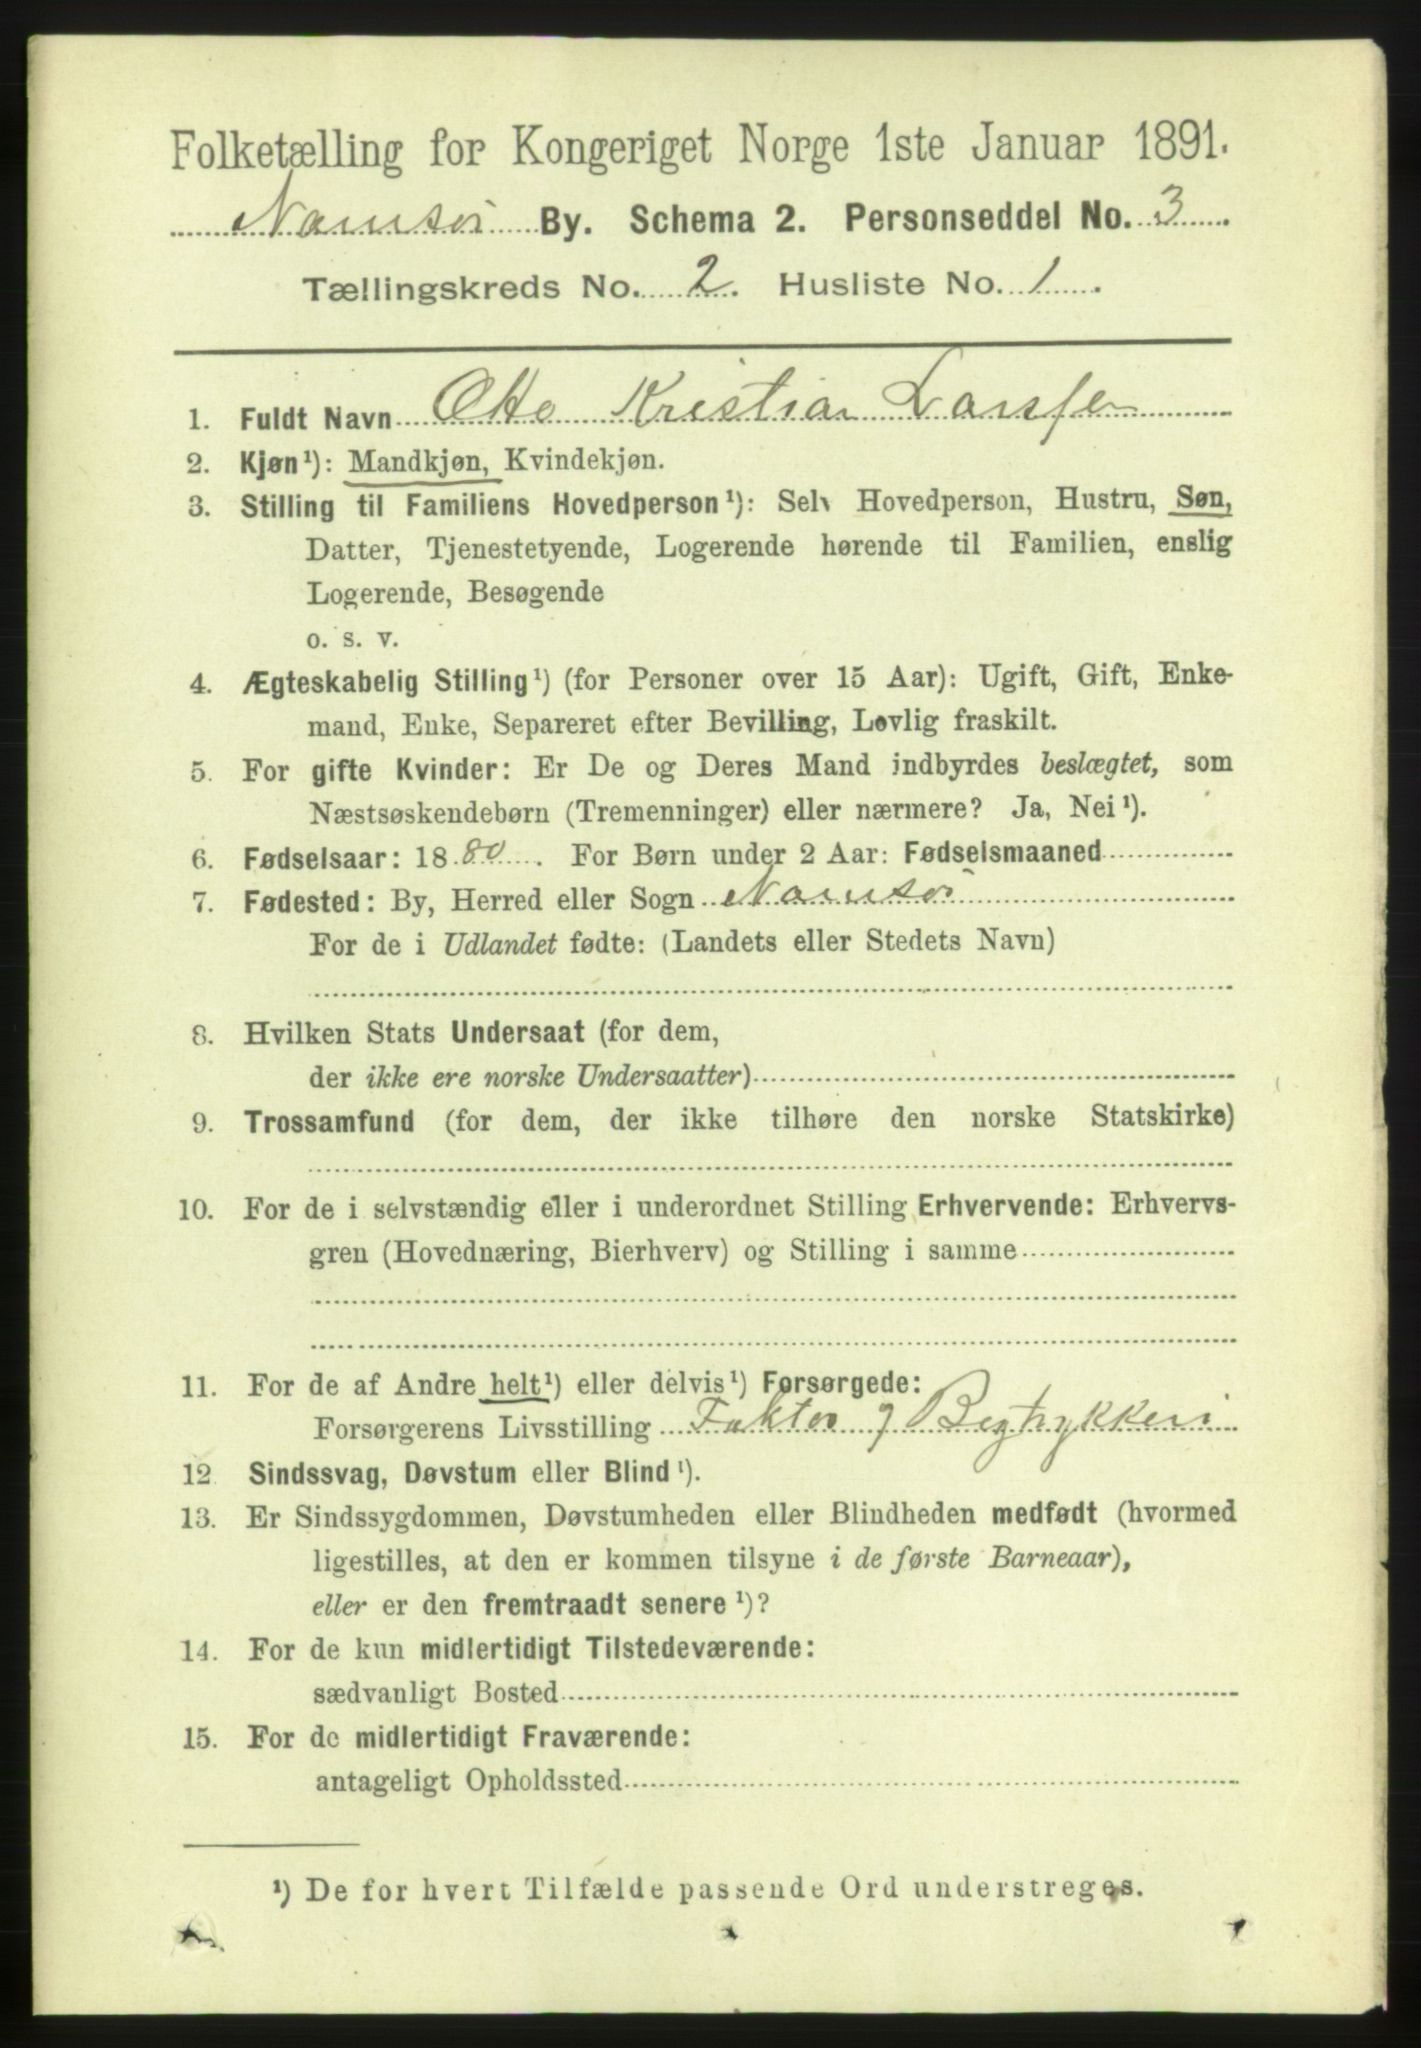 Folketælling for Kongeriget Norge 1ste Januar 1891.
Namsos By. Schema 2. Personseddel No. 3
Tællingskreds No. 2. Husliste No. 1.
1. Fuldt Navn Otto Kristian Larssen
2. Kjøn¹): Mandkjøn, Kvindekjøn.
3. Stilling til Familiens Hovedperson¹): Selv Hovedperson, Hustru, Søn,
Datter, Tjenestetyende, Logerende hørende til Familien, enslig
Logerende, Besøgende
o. s. v.
4. Ægteskabelig Stilling¹) (for Personer over 15 Aar): Ugift, Gift, Enke-
mand, Enke, Separeret efter Bevilling, Lovlig fraskilt.
5. For gifte Kvinder: Er De og Deres Mand indbyrdes beslægtet, som
Næstsøskendebørn (Tremenninger) eller nærmere? Ja, Nei¹).
6. Fødselsaar: 1880. For Børn under 2 Aar: Fødselsmaaned
7. Fødested: By, Herred eller Sogn Namsos
For de i Udlandet fødte: (Landets eller Stedets Navn)
8. Hvilken Stats Undersaat (for dem,
der ikke ere norske Undersaatter)
9. Trossamfund (for dem, der ikke tilhøre den norske Statskirke)
10. For de i selvstændig eller i underordnet Stilling Erhvervende: Erhvervs-
gren (Hovednæring, Bierhverv) og Stilling i samme
11. For de af Andre helt¹) eller delvis¹) Forsørgede:
Forsørgerens Livsstilling Faktor Bogtrykkeri
12 Sindssvag, Døvstum eller Blind¹).
13. Er Sindssygdommen, Døvstumheden eller Blindheden medfødt (hvormed
ligestilles, at den er kommen tilsyne i de første Barneaar),
eller er den fremtraadt senere¹)?
14. For de kun midlertidigt Tilstedeværende:
sædvanligt Bosted
15. For de midlertidigt Fraværende:
antageligt Opholdssted
¹) De for hvert Tilfælde passende Ord understreges.